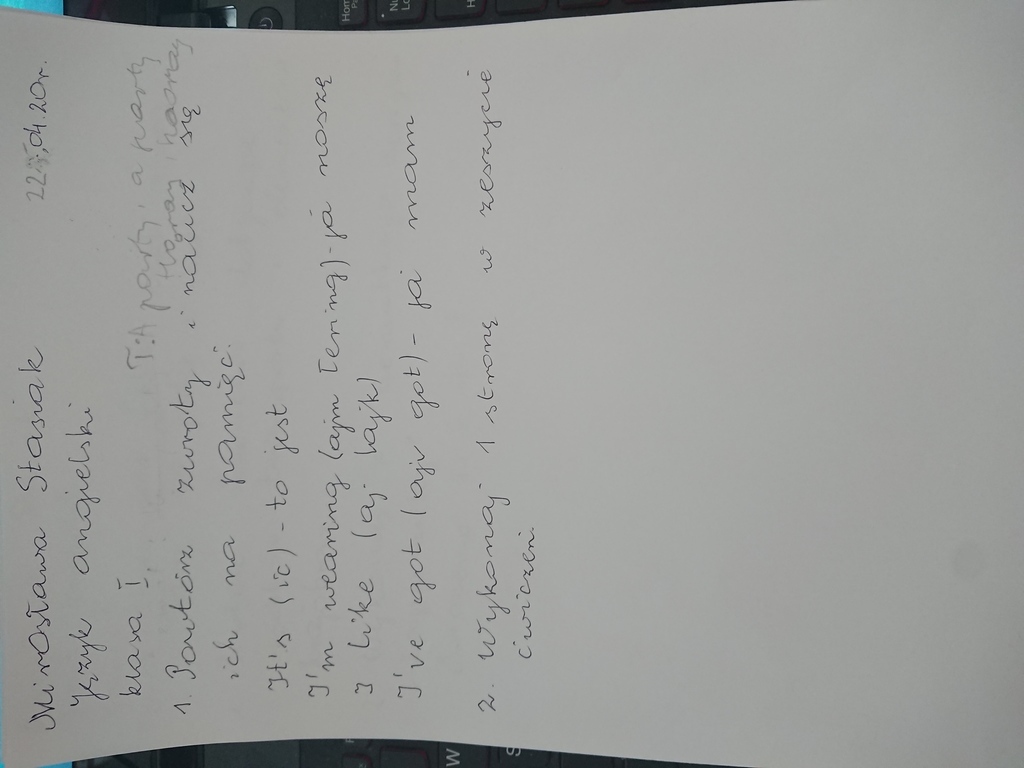 Mirosława Stasiak 22.04.20r.
Język angielski
klasa I. T: A party, a party
Hooray, hooray
1. Powtórz zwroty i naucz się
ich na pamięć.
It's (ic) - to jest
I'm wearing (ajm łering) - ja noszę
I like (aj lajk)
I've got (ajv got) - ja mam
2. Wykonaj 1 stronę w zeszycie
ćwiczeń.